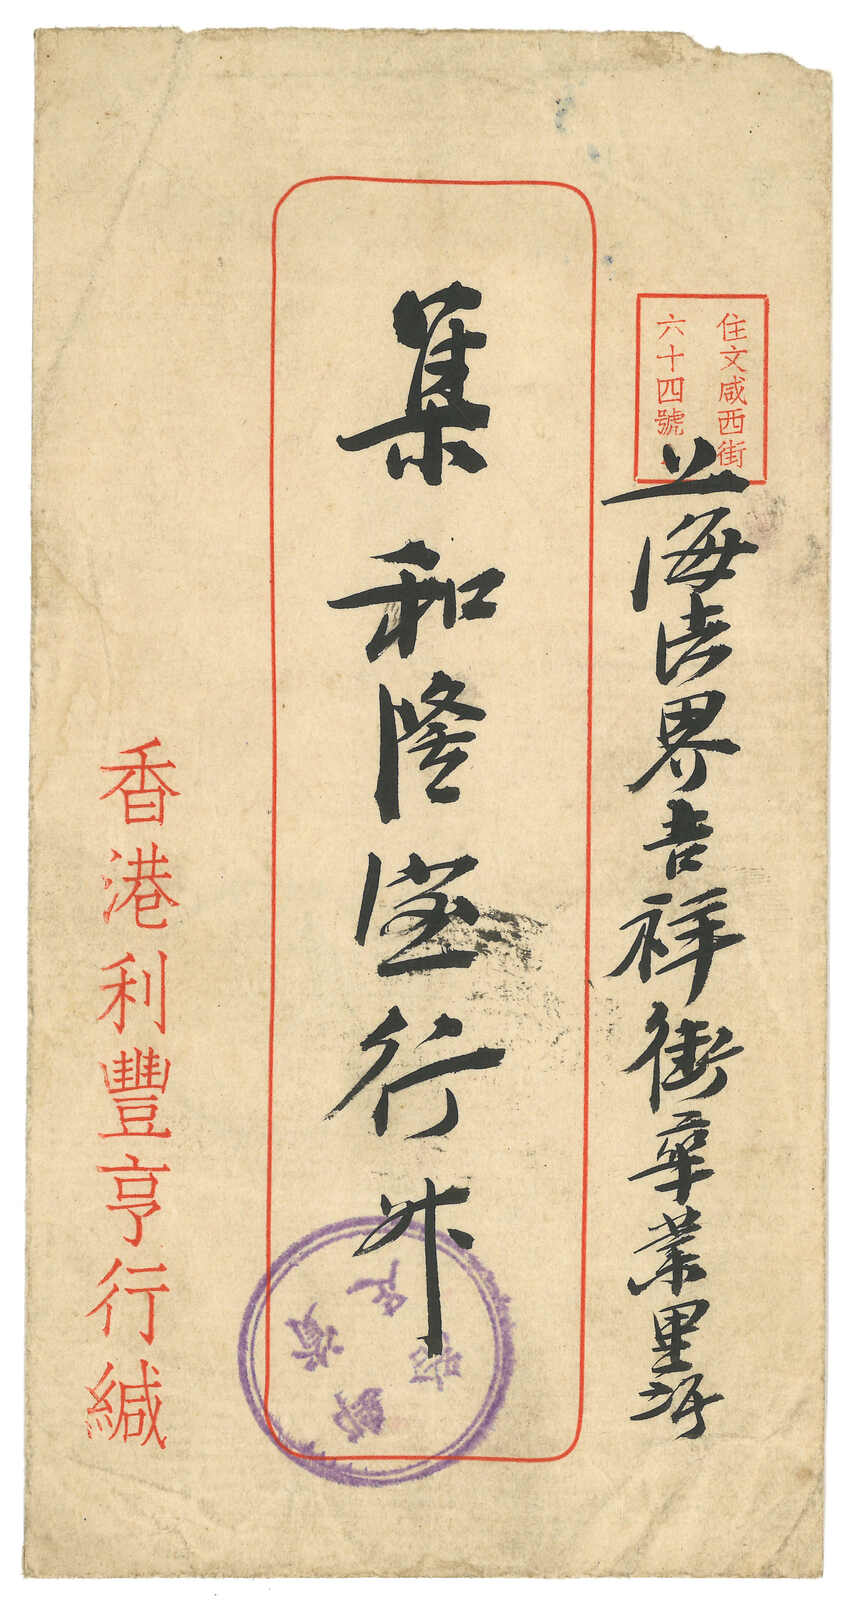 住文咸西街
六十四號
上海法界吉祥街華業里
集和隆宝行升
香港利豐亨行緘